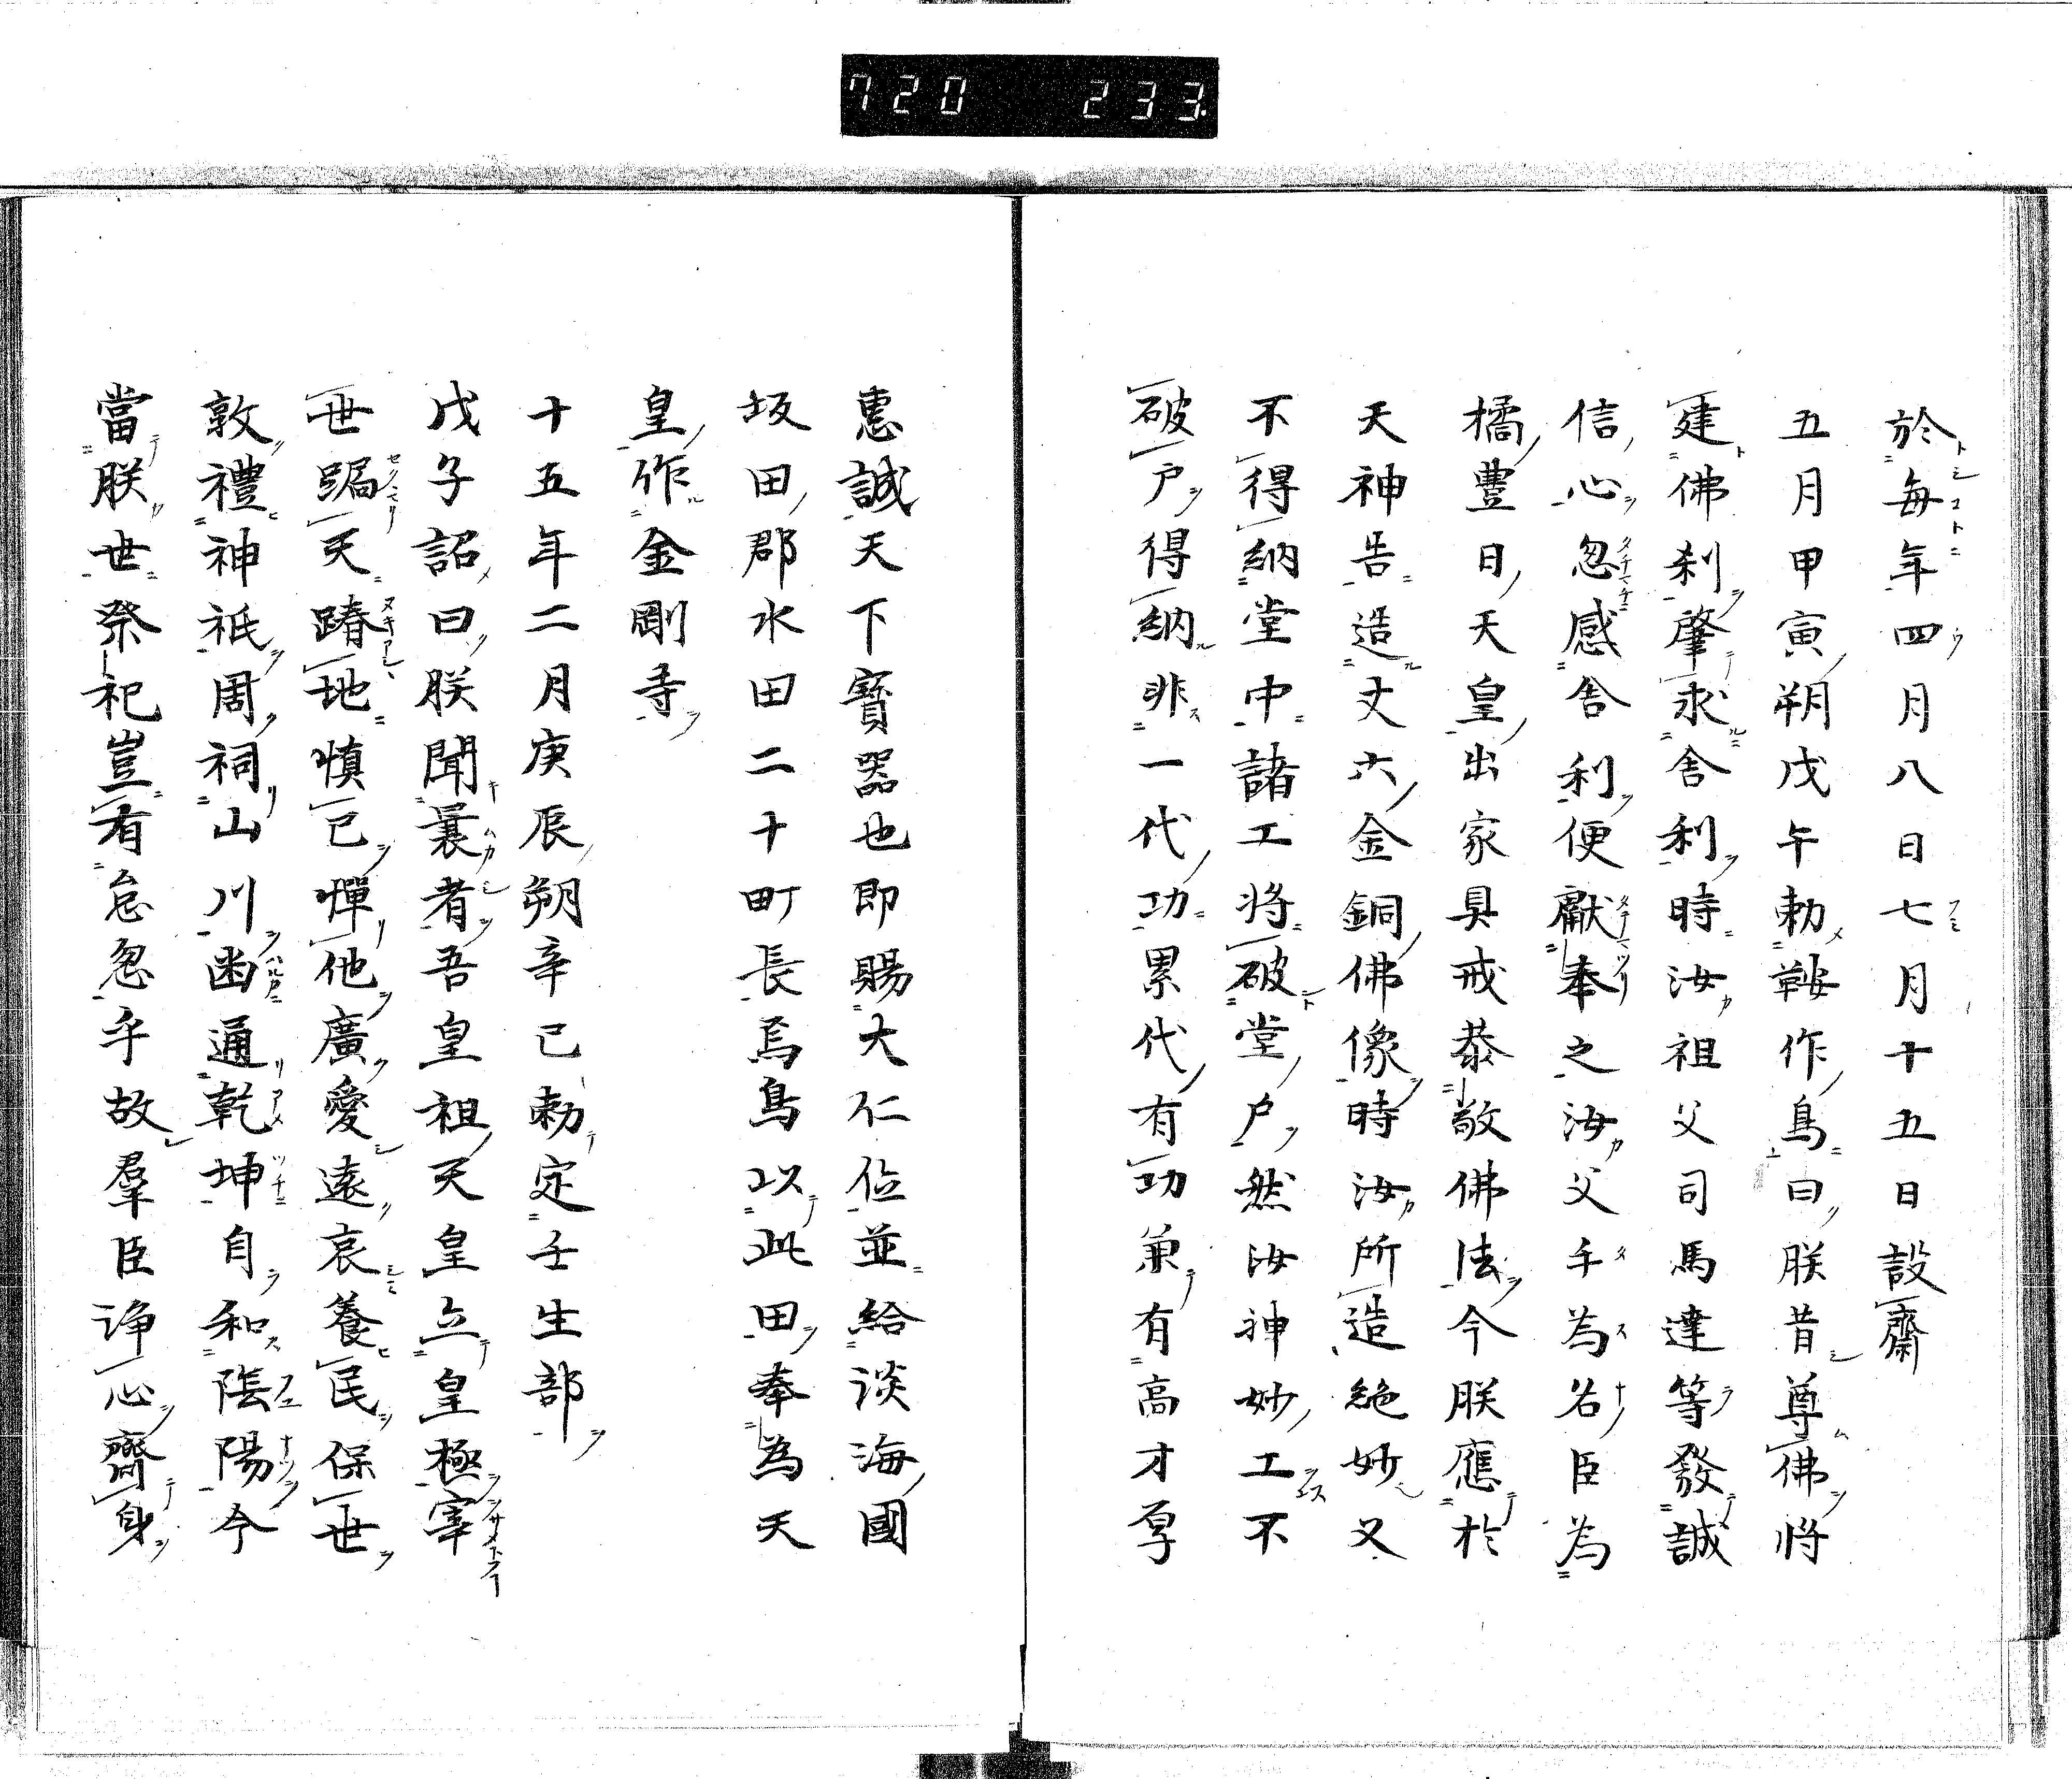 720 233
於每年四月八日七月十五日設齋
五月甲寅朔戊午勅鞍作鳥曰朕昔尊佛将
建佛刹肇求舎利時汝祖父司馬達等發誠
信心忽感舎利便獻奉之汝父手為名臣為
橘豐日天皇出家具戒恭敬佛法今朕應於
天神告造丈六金銅佛像時汝所造絶妙又
不得納堂中諸工将破堂户然汝神妙工不
破户得納非一代功累代有功兼有高才厚
惠誠天下寳器也即賜大仁位並給淡海國
坂田郡水田二十町長焉鳥以此田奉為天
皇作金剛寺
十五年二月庚辰朔辛已勅定壬生部
戊子詔曰朕聞曩者吾皇祖天皇立皇極宰
世跼天蹐地慎已憚他廣愛遠哀養民保世
敦禮神祇周祠山川幽通乾坤自和陰陽今
當朕世祭祀豈有怠忽乎故羣臣諍心齊身